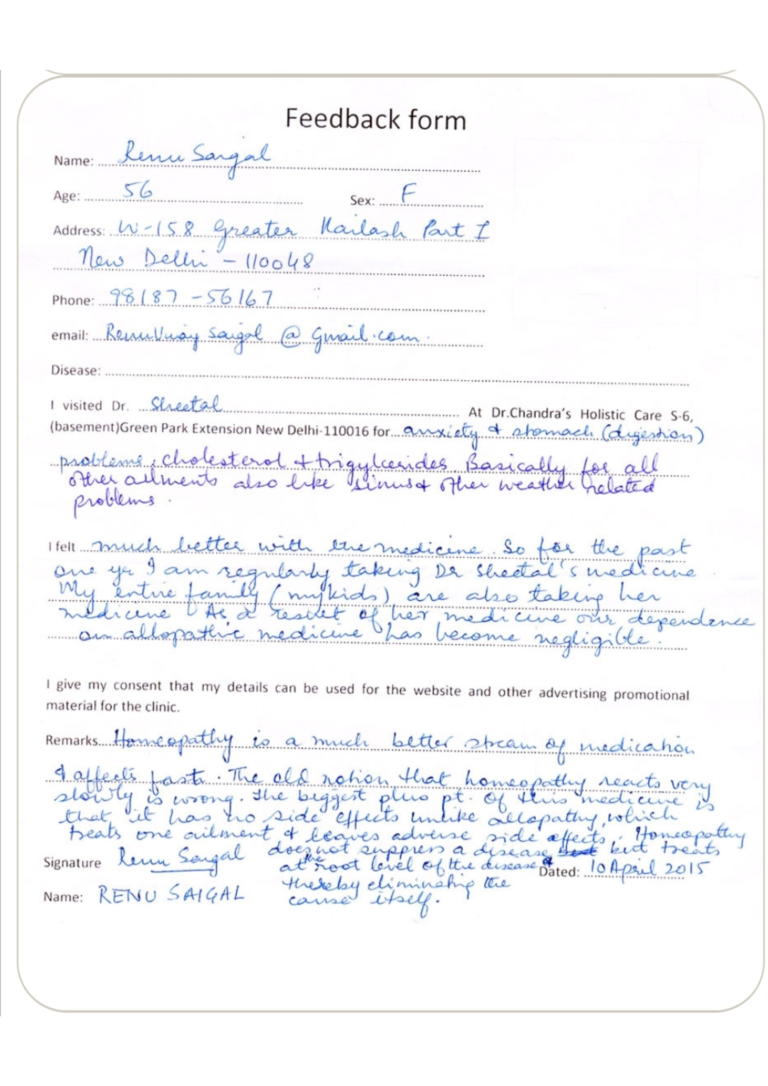 Feedback form
Name: Renu Saigal
Age: 56 Sex: F
Address: W-158 Greater Kailash Part I
New Delhi - 110048
Phone: 98187-56167
email: RenuVijay saigal @ Gmail.com.
Disease:
I visited Dr. Sheetal At Dr.Chandra's Holistic Care S-6,
(basement)Green Park Extension New Delhi-110016 for anxiety & stomach (digestion)
problems, cholesterol + trigylcerides. Basically for all
other ailments also like sinus & other weather related
problems.
I felt much better with the medicine. So for the past
one yr I am regularly taking Dr Sheetal's medicine
My entire family (my kids) are also taking her
medicine. As a result of her medicine our dependence
on allopathic medicine has become negligible.
I give my consent that my details can be used for the website and other advertising promotional
material for the clinic.
Remarks Homeopathy is a much better stream of medication
& affects fast. The old notion that homeopathy reacts very
slowly is wrong. The biggest plus pt. of this medicine is
that it has no side effects unlike allopathy, which
treats one ailment & leaves adverse side effects. Homeopathy
does not suppress a disease but treats
at the root level of the disease &
thereby eliminating the
cause itself.
Signature Renu Saigal Dated: 10 April 2015
Name: RENU SAIGAL